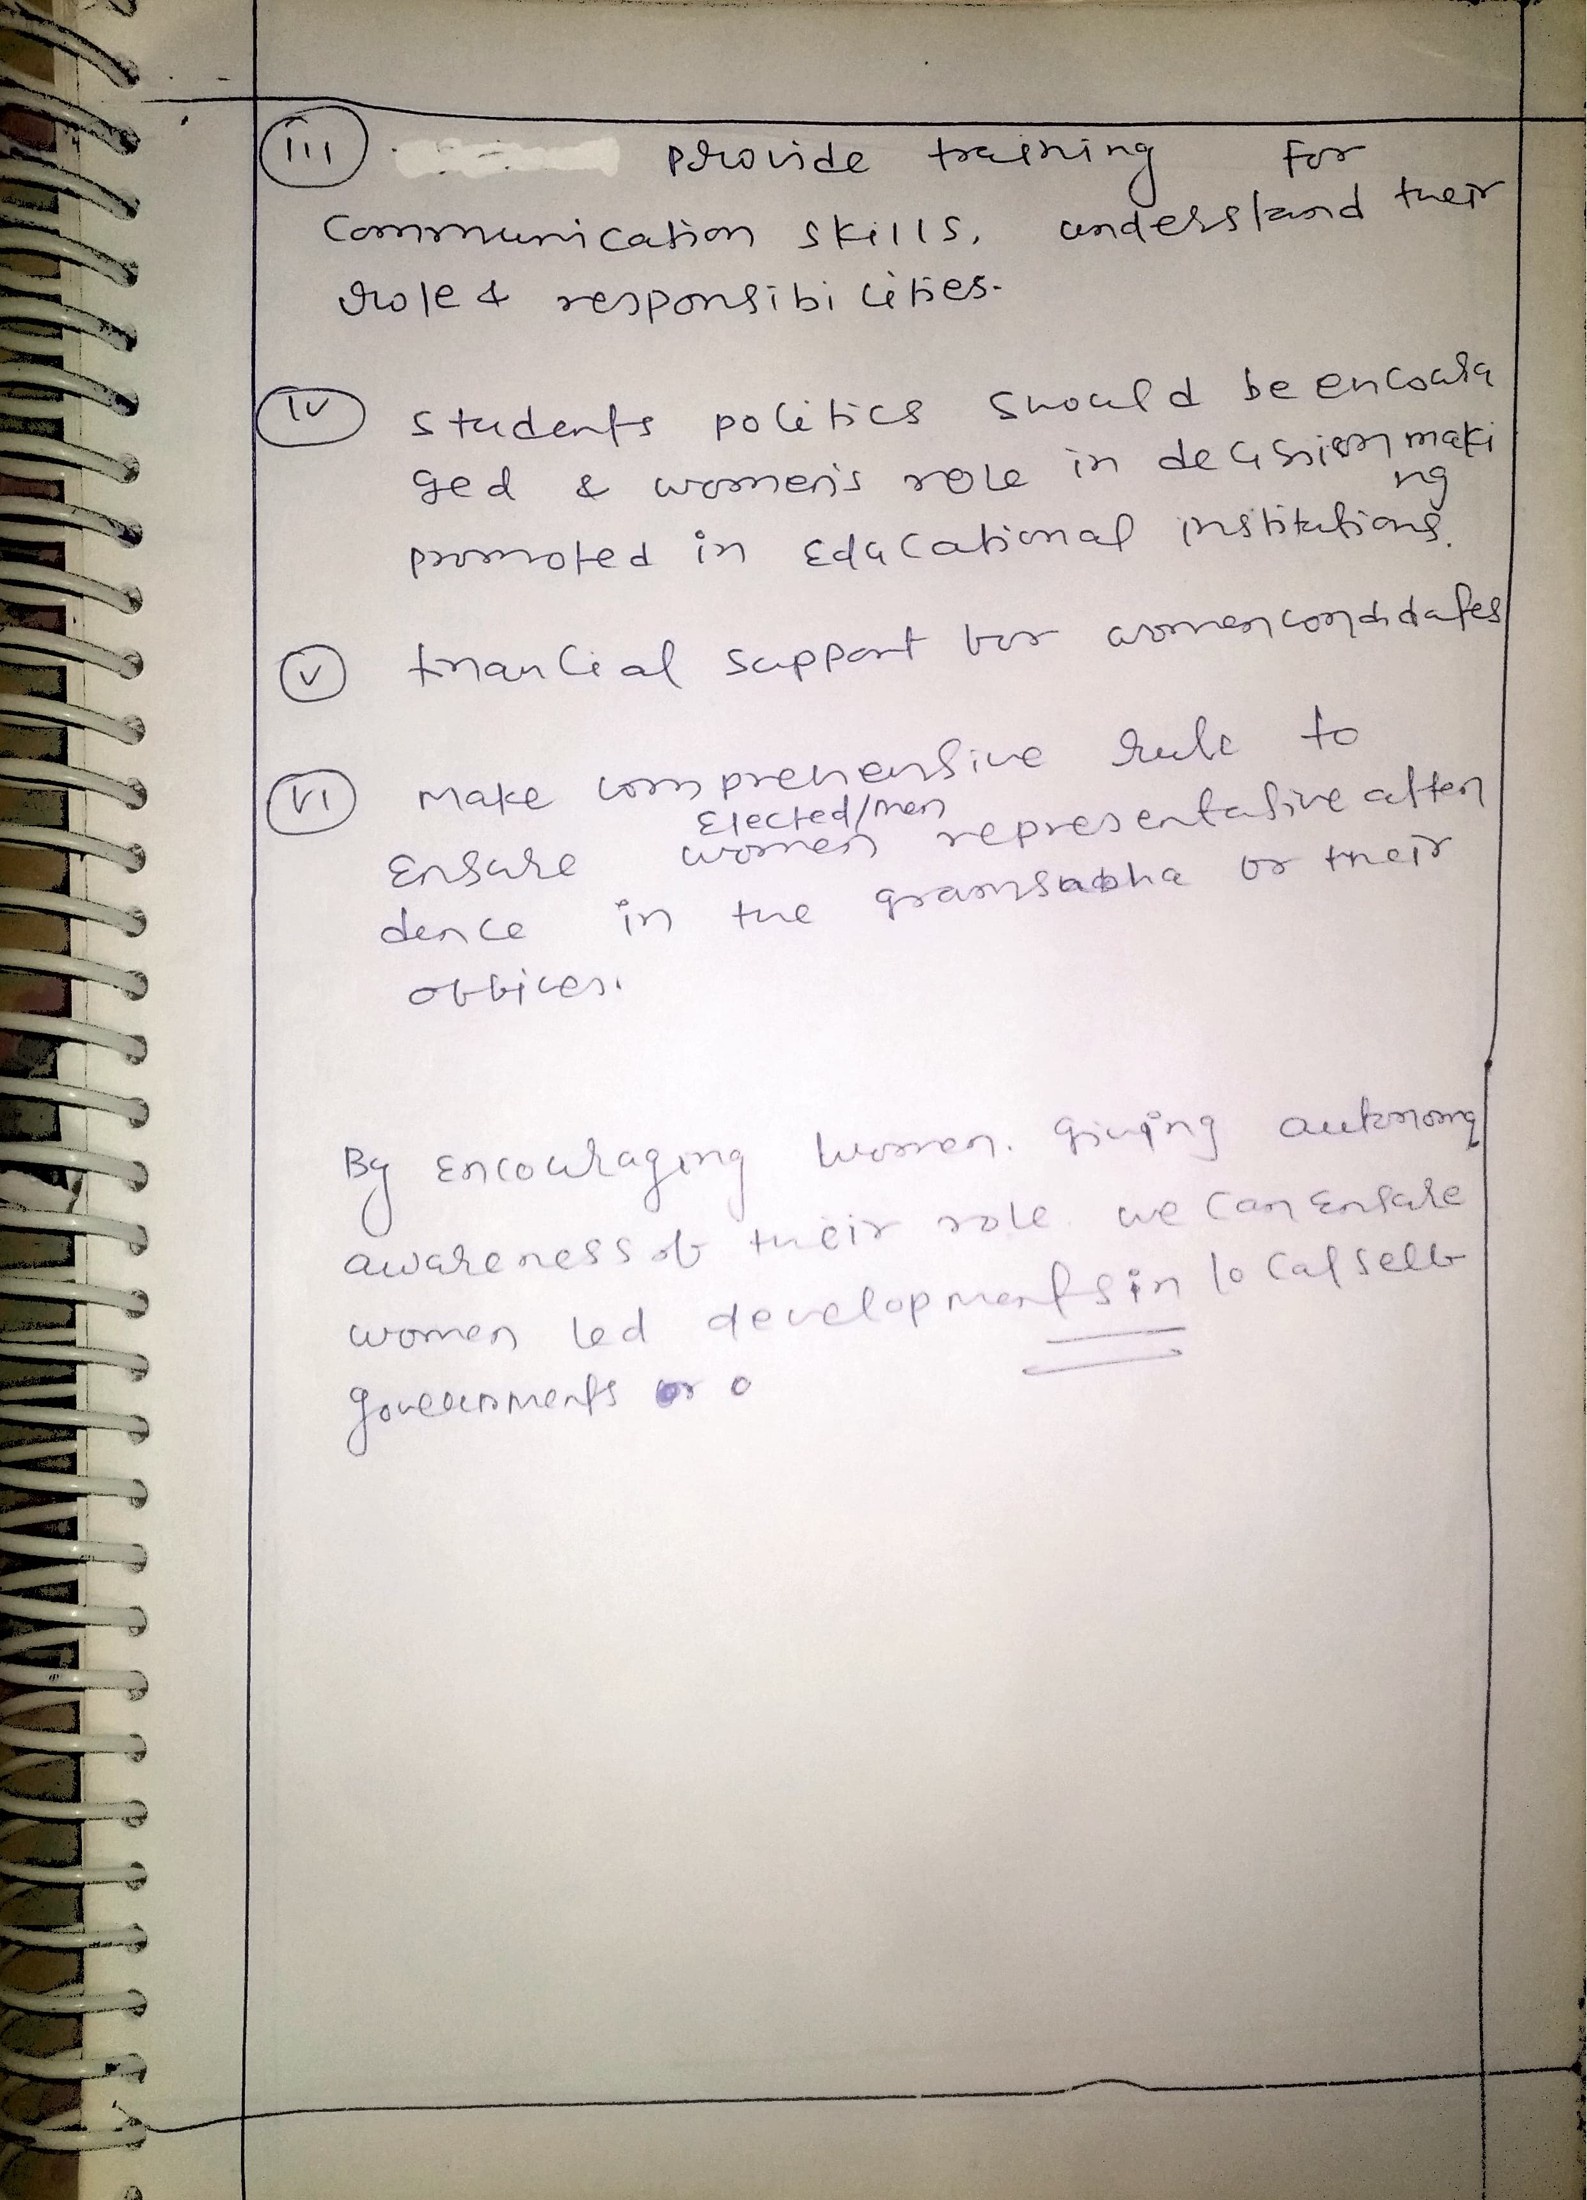 iii provide training for
communication skills, understand their
role & responsibilities.
iv students politics should be encoura
ged & women's role in decision maki
ng
promoted in Educational institutions.
v financial support for women candidates
vi Make comprehensive rule to
Elected/men
Ensure women representative atten
dence in the gramsabha or their
offices.
By encouraging women. giving autonomy
awareness of their role. we can Ensure
women led developments in local self
governments or o